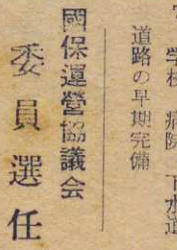 学校 病院 下水道
道路の早期完備
國保運營協議会
委員選任